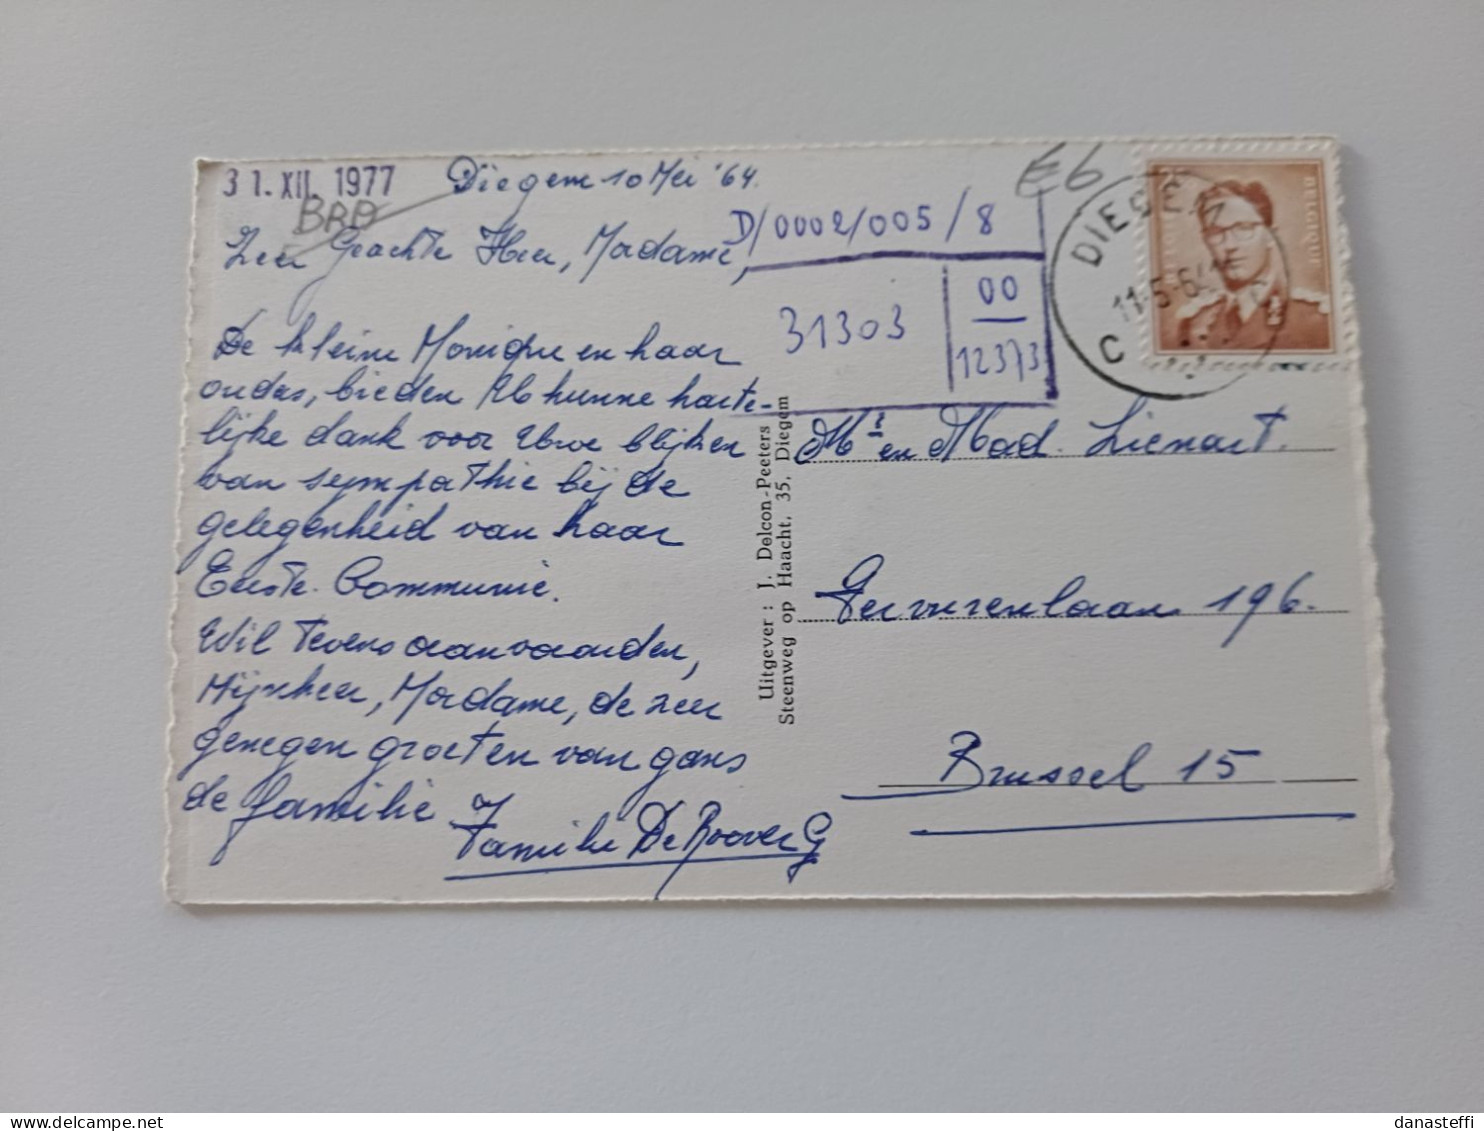 31. XII. 1977
BRD
Diegem 10 Mei '64.
E6
D/0002/005/8
31303
00
12373
DIEGEM
11-5-64
C
BELGIQUE
Zeer Geachte Heer, Madame,
De kleine Monique en haar
ouders, bieden Ub hunne harte-
lijke dank voor Uwe blijken
van sympathie bij de
gelegenheid van haar
Eerste Communie.
Wil tevens aanvaarden,
Mijnheer, Madame, de zeer
genegen groeten van gans
de familie
Familie De Roover G
Uitgever : J. Delcon-Peeters
Steenweg op Haacht, 35, Diegem
Mr en Mad. Lienart.
Tervurenlaan 196.
Brussel 15
danasteffi